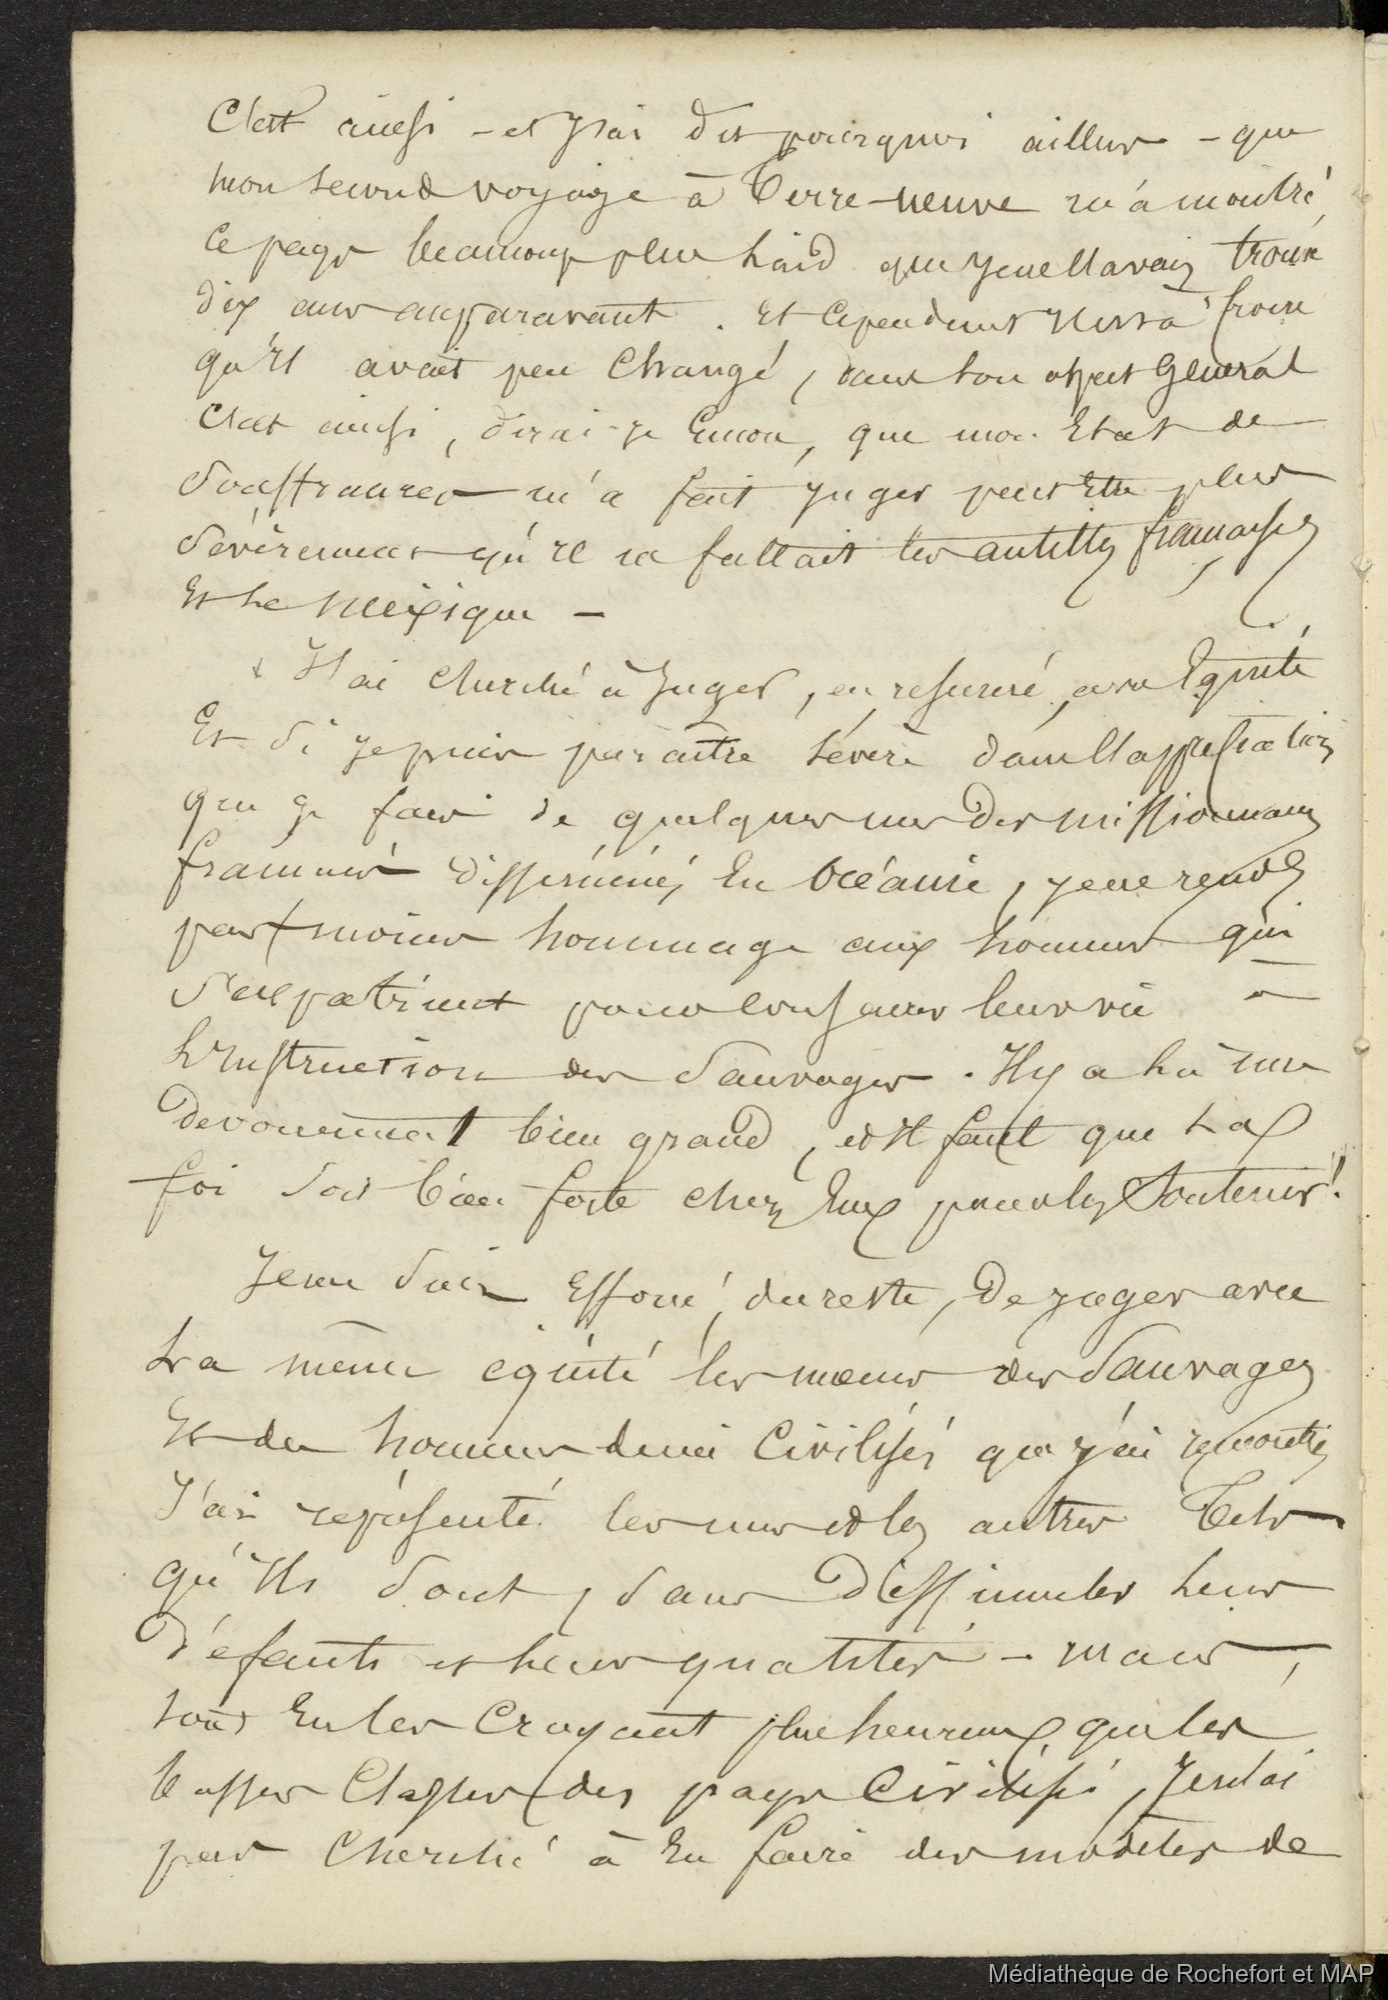 C'est ainsi - et j'ai dit pourquoi ailleurs - que
mon second voyage à Terre-neuve m'a montré
ce pays beaucoup plus laid que je ne l'avais trouvé
dix ans auparavant. Et cependant il est à croire
qu'il avait peu changé, dans son aspect général
C'est ainsi, dirai-je encore, que mon état de
souffrances m'a fait juger peut être plus
sévèrement qu'il ne fallait les antilles françaises
et le Mexique -
J'ai cherché à juger, en résumé, avec équité
Et si je puis paraître sévère dans l'appréciation
que je fais de quelques uns des missionnaires
français disséminés en Océanie, je ne rends
pas moins hommage aux hommes qui
s'expatrient pour consacrer leur vie à
l'instruction des sauvages. Il y a là un
dévouement bien grand, et il faut que la
foi soit bien forte chez eux pour les soutenir!
Je me suis efforcé, du reste, de juger avec
la même équité les mœurs des sauvages
et des hommes demi civilisés que j'ai rencontrés
J'ai représenté les uns et les autres tels
qu'ils sont, sans dissimuler leurs
défauts et leurs qualités - mais,
tout en les croyant plus heureux que les
basses classes des pays civilisés, je n'ai
pas cherché à en faire des modèles de
Médiathèque de Rochefort et MAP